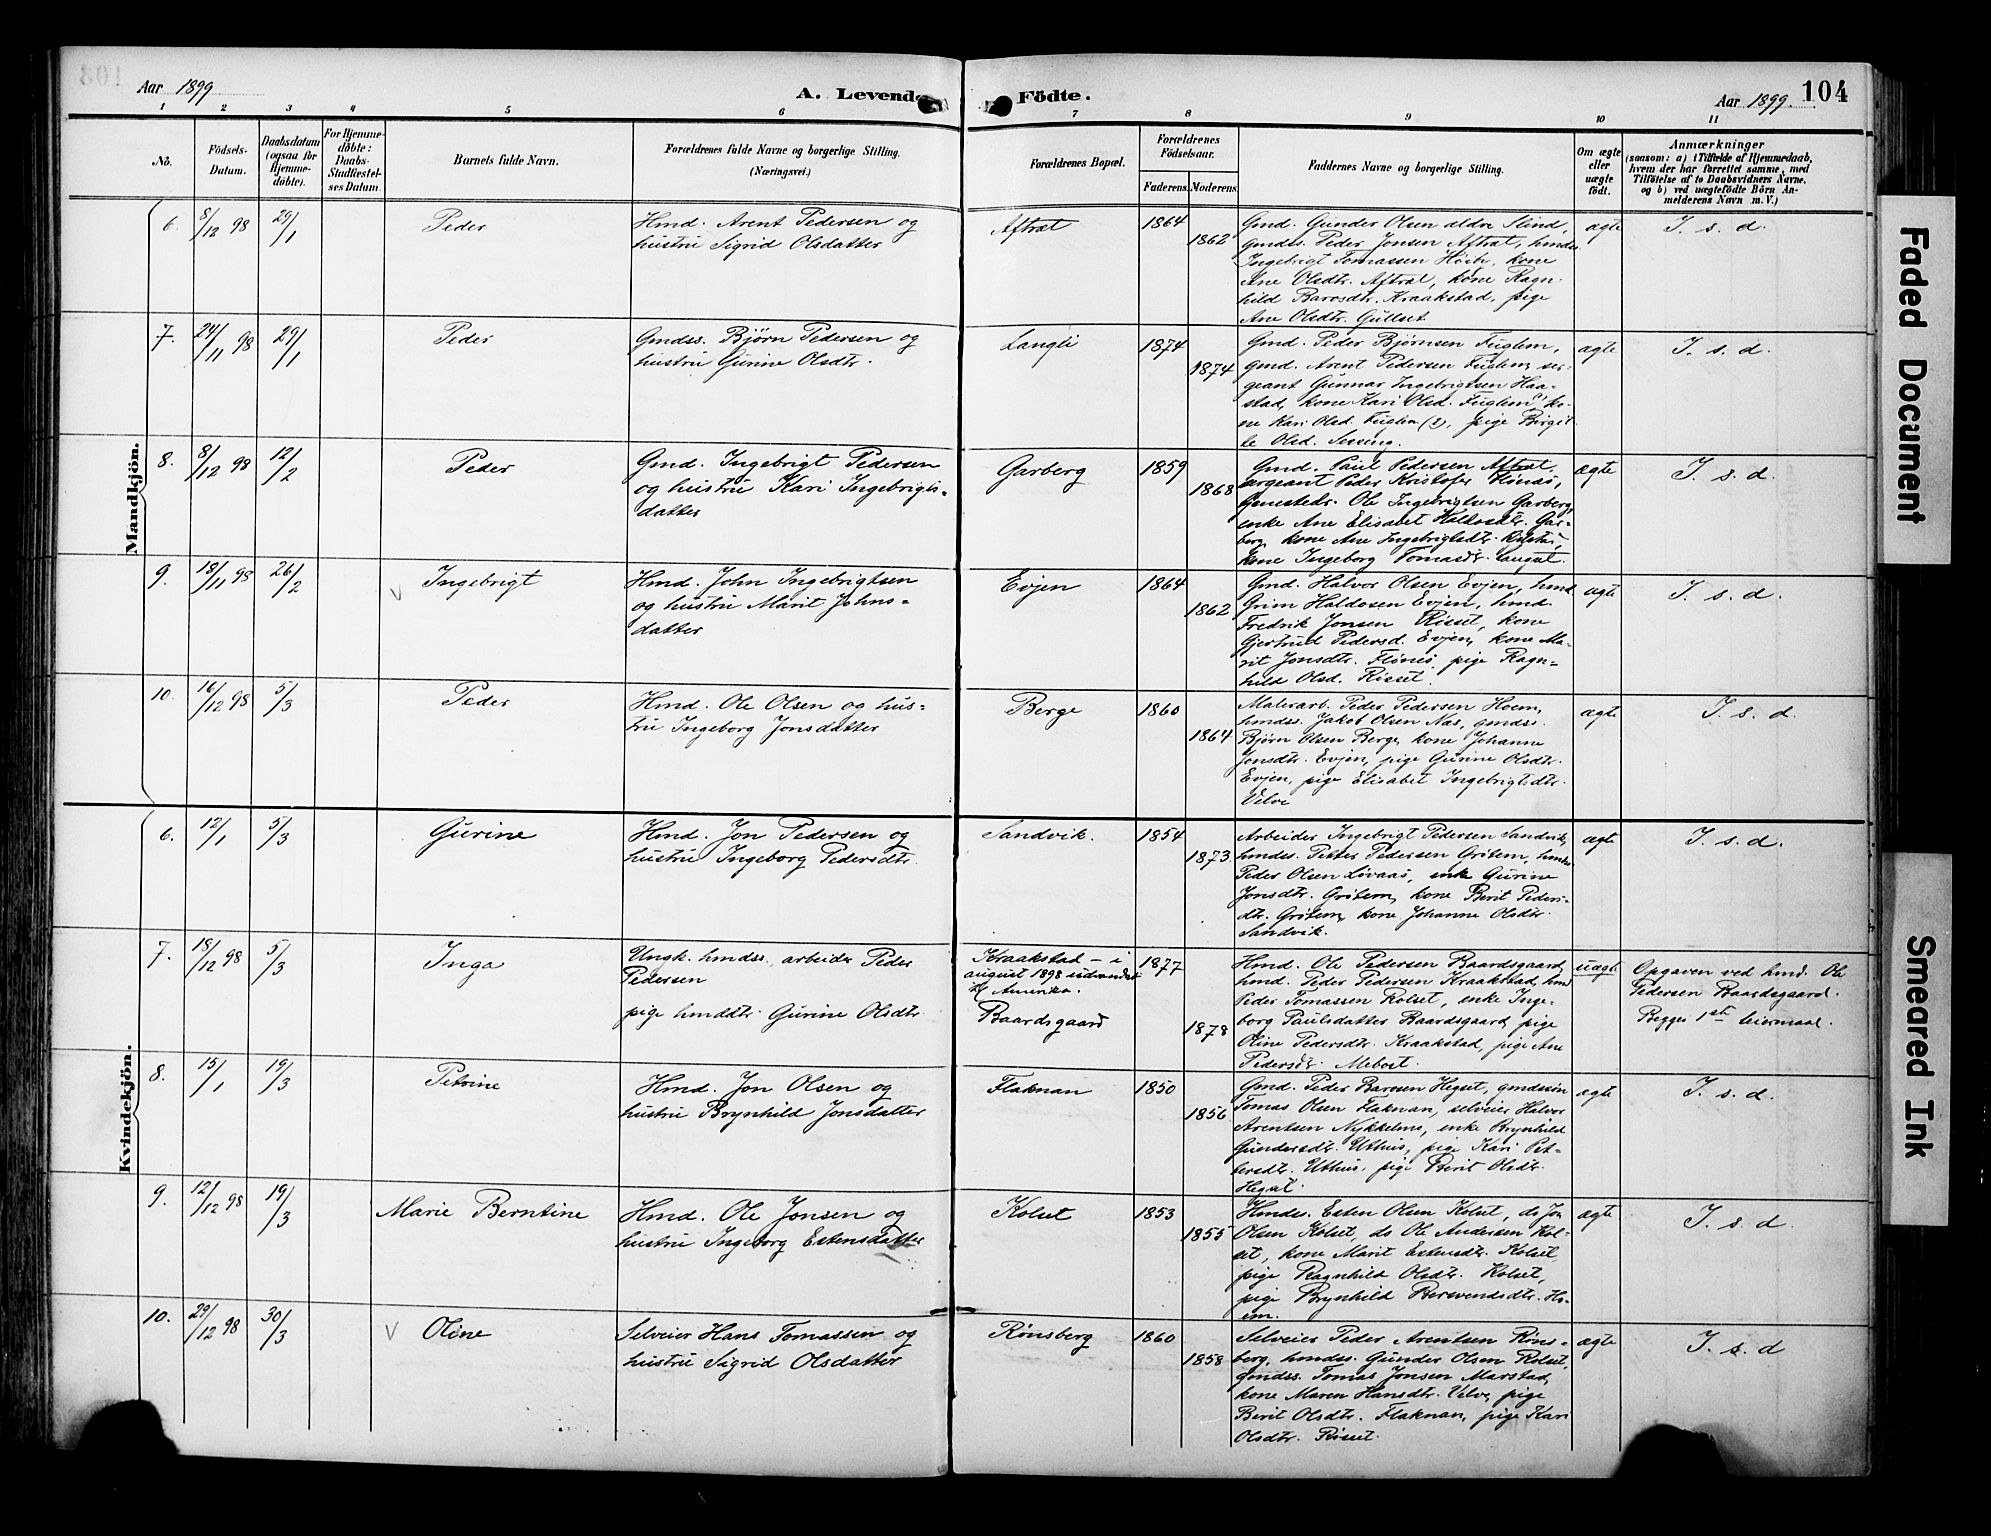 Aar 1899
A. Levende Födte.
Aar 1899.
104
1 2 3 4 5 6 7 8 9 10 11
No.
Födsels-
Datum.
Daabsdatum
(ogsaa for
Hjemme-
döbte).
For Hjemme-
döbte:
Daabs-
Stadfæstel-
ses Datum.
Barnets fulde Navn.
Forældrenes fulde Navne og borgerlige Stilling.
(Næringsvei.)
Forældrenes Bopæl.
Forældrenes
Födselsaar.
Faderens. Moderens.
Faddernes Navne og borgerlige Stilling.
Om ægte
eller
uægte
födt.
Anmærkninger
(saasom: a) i Tilfælde af Hjemmedaab,
hvem der har forrettet samme, med
Tilföielse af to Daabsvidners Navne.
og b) ved uægtefödte Börn An-
melderens Navn m. V.)
Mandkjön.
6. 8/12 98 29/1 Peder
Hmd. Arent Pedersen og
hustru Sigrid Olsdatter
Aftræt 1864 1862
Gmd. Gunder Olsen aldre Slind,
gmdss. Peder Jonsen Aftræt, hmdss.
Ingebrigt Tomassen Höiby, kone
Ane Olsdtr. Aftræt, kone Ragn-
hild Baro​sdtr. Kraakstad, pige
Ane Olsdtr. Gullset
ægte I. s. d.
7. 24/11 98 29/1 Peder
Gmdss. Björn Pedersen og
hustru Gurine Olsdtr.
Langli 1874 1874
Gmd. Peder Björnsen Fuglem,
gmd. Arent Pedersen Fuglem, ser-
geant Gunnar Ingebrigtsen Haa-
stad, kone Kari Olsd. Fuglem (1) ko-
ne Kari Olsd. Fuglem (2), pige Birgit-
te Olsd. Sessing.
ægte I. s. d.
8. 8/12 98 12/2 Peder
Gmd. Ingebrigt Pedersen
og hustru Kari Ingebrigts-
datter
Garberg 1859 1868
Gmd. Paul Pedersen Aftræt,
sergeant Peder Kristofer Flønæs,
Ole Ingebrigtsen Garberg,
enke Ane Elisabet Haldosdtr. Gar-
berg, kone Ane Ingebrigtsdtr.
kone Ingeborg Tomasdtr.
ægte I. s. d.
9. 18/11 98 26/2 V Ingebrigt
Hmd. John Ingebrigtsen
og hustru Marit Johns-
datter
Evjen 1864 1862
Gmd. Halvor Olsen Evjen, hmd
Grim Haldosen Evjen, hmd.
Fredrik Jonsen Risset, kone
Gjertrud Pedersd. Evjen, kone Ma-
rit Jonsdtr. Flönes, pige Ragn-
hild Olsd. Risset.
ægte I. s. d.
10. 16/12 98 5/3 Peder
Hmd. Ole Olsen og hus-
tru Ingeborg Jonsdatter
Berge 1860 1864
Malerarb. Peder Pedersen Hoem,
hmdss. Jakob Olsen Næs, gmdss.
Bjørn Olsen Berge, kone Johanne
Jonsdtr. Evjen, pige Gurine Olsdtr.
Evjen, pige Elisabet Ingebrigtsdtr.
Velve
ægte I. s. d.
Kvindekjön.
6. 12/1 5/3 Gurine
Hmd. Jon Pedersen og
hustru Ingeborg Pedersdtr.
Sandvik. 1854 1873.
Arbeider Ingebrigt Pedersen Sandvik,
hmdss. Petter Pedersen Grötem, hmdss
Peder Olsen Lövaas, enke Gurine
Jonsdtr. Grötem, kone Berit Peders-
dtr. Grötem, kone Johanne Olsdtr.
Sandvik.
ægte I. s. d.
7. 18/12 98 5/3 Inga
Ungk. hmdss. arbeider Peder
Pedersen
pige hmddtr. Gurine Olsdtr.
Kraakstad - i
august 1898 udvandret
t/ Amerika.
Baardsgaard
1877 1878
Hmd. Ole Pedersen Baardsgaard,
hmd. Peder Pedersen Kraakstad, hmd
Peder Tomassen Kolset, enke Inge-
borg Paulsdatter Baardsgaard, pige
Oline Pedersdtr. Kraakstad, pige Ane
Pedersdtr. Mebost.
uægte
Opgaven ved hmd. Ole
Pedersen Baardsgaard.
Begges 1ste leiermaal.
8. 15/1 19/3 Petrine
Hmd. Jon Olsen og
hustru Brynhild Jonsdatter
Flaknan 1850 1856
Gmd. Peder Barosen Hegset, gmdssön
Tomas Olsen Flaknan, selveier Halvor
Arentsen Nykkelmo, enke Brynhild
Gundersdtr. Uthus, pige Kari Pet-
tersdtr. Uthus, pige Berit Olsdtr.
Hegset.
ægte I. s. d.
9. 12/12 98 19/3 Marie Berntine
Hmd. Ole Jonsen og
hustru Ingeborg Estensdatter
Kolset 1853 1855
Hmdss. Esten Olsen Kolset, do Jon
Olsen Kolset, do Ole Andersen Kol-
set, kone Marit Estensdtr. Kolset
pige Ragnhild Olsdtr. Kolset,
pige Brynhild Bersvendsdtr. Ho-
em.
ægte I. s. d.
10. 29/12 98 30/3 V Oline
Selveier Hans Tomassen og
hustru Sigrid Olsdatter
Rönsberg 1860 1858
Selveier Peder Arentsen Röns-
berg, hmdss. Gunder Olsen Kolset,
gmdss. Tomas Jonsen Marstad,
kone Maren Hansdtr. Velve, pige
Berit Olsdtr. Flaknan, pige Kari
Olsdtr. Risset.
ægte I. s. d
Faded Document
Smeared Ink